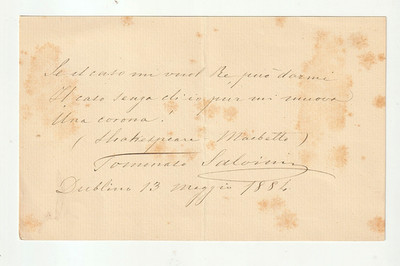 Se il caso mi vuol Re, può darmi
Il caso senza ch'io pur mi muova
Una corona!
(Shakespeare Macbetto)
Tommaso Salvini
Dublino 13 Maggio 1884